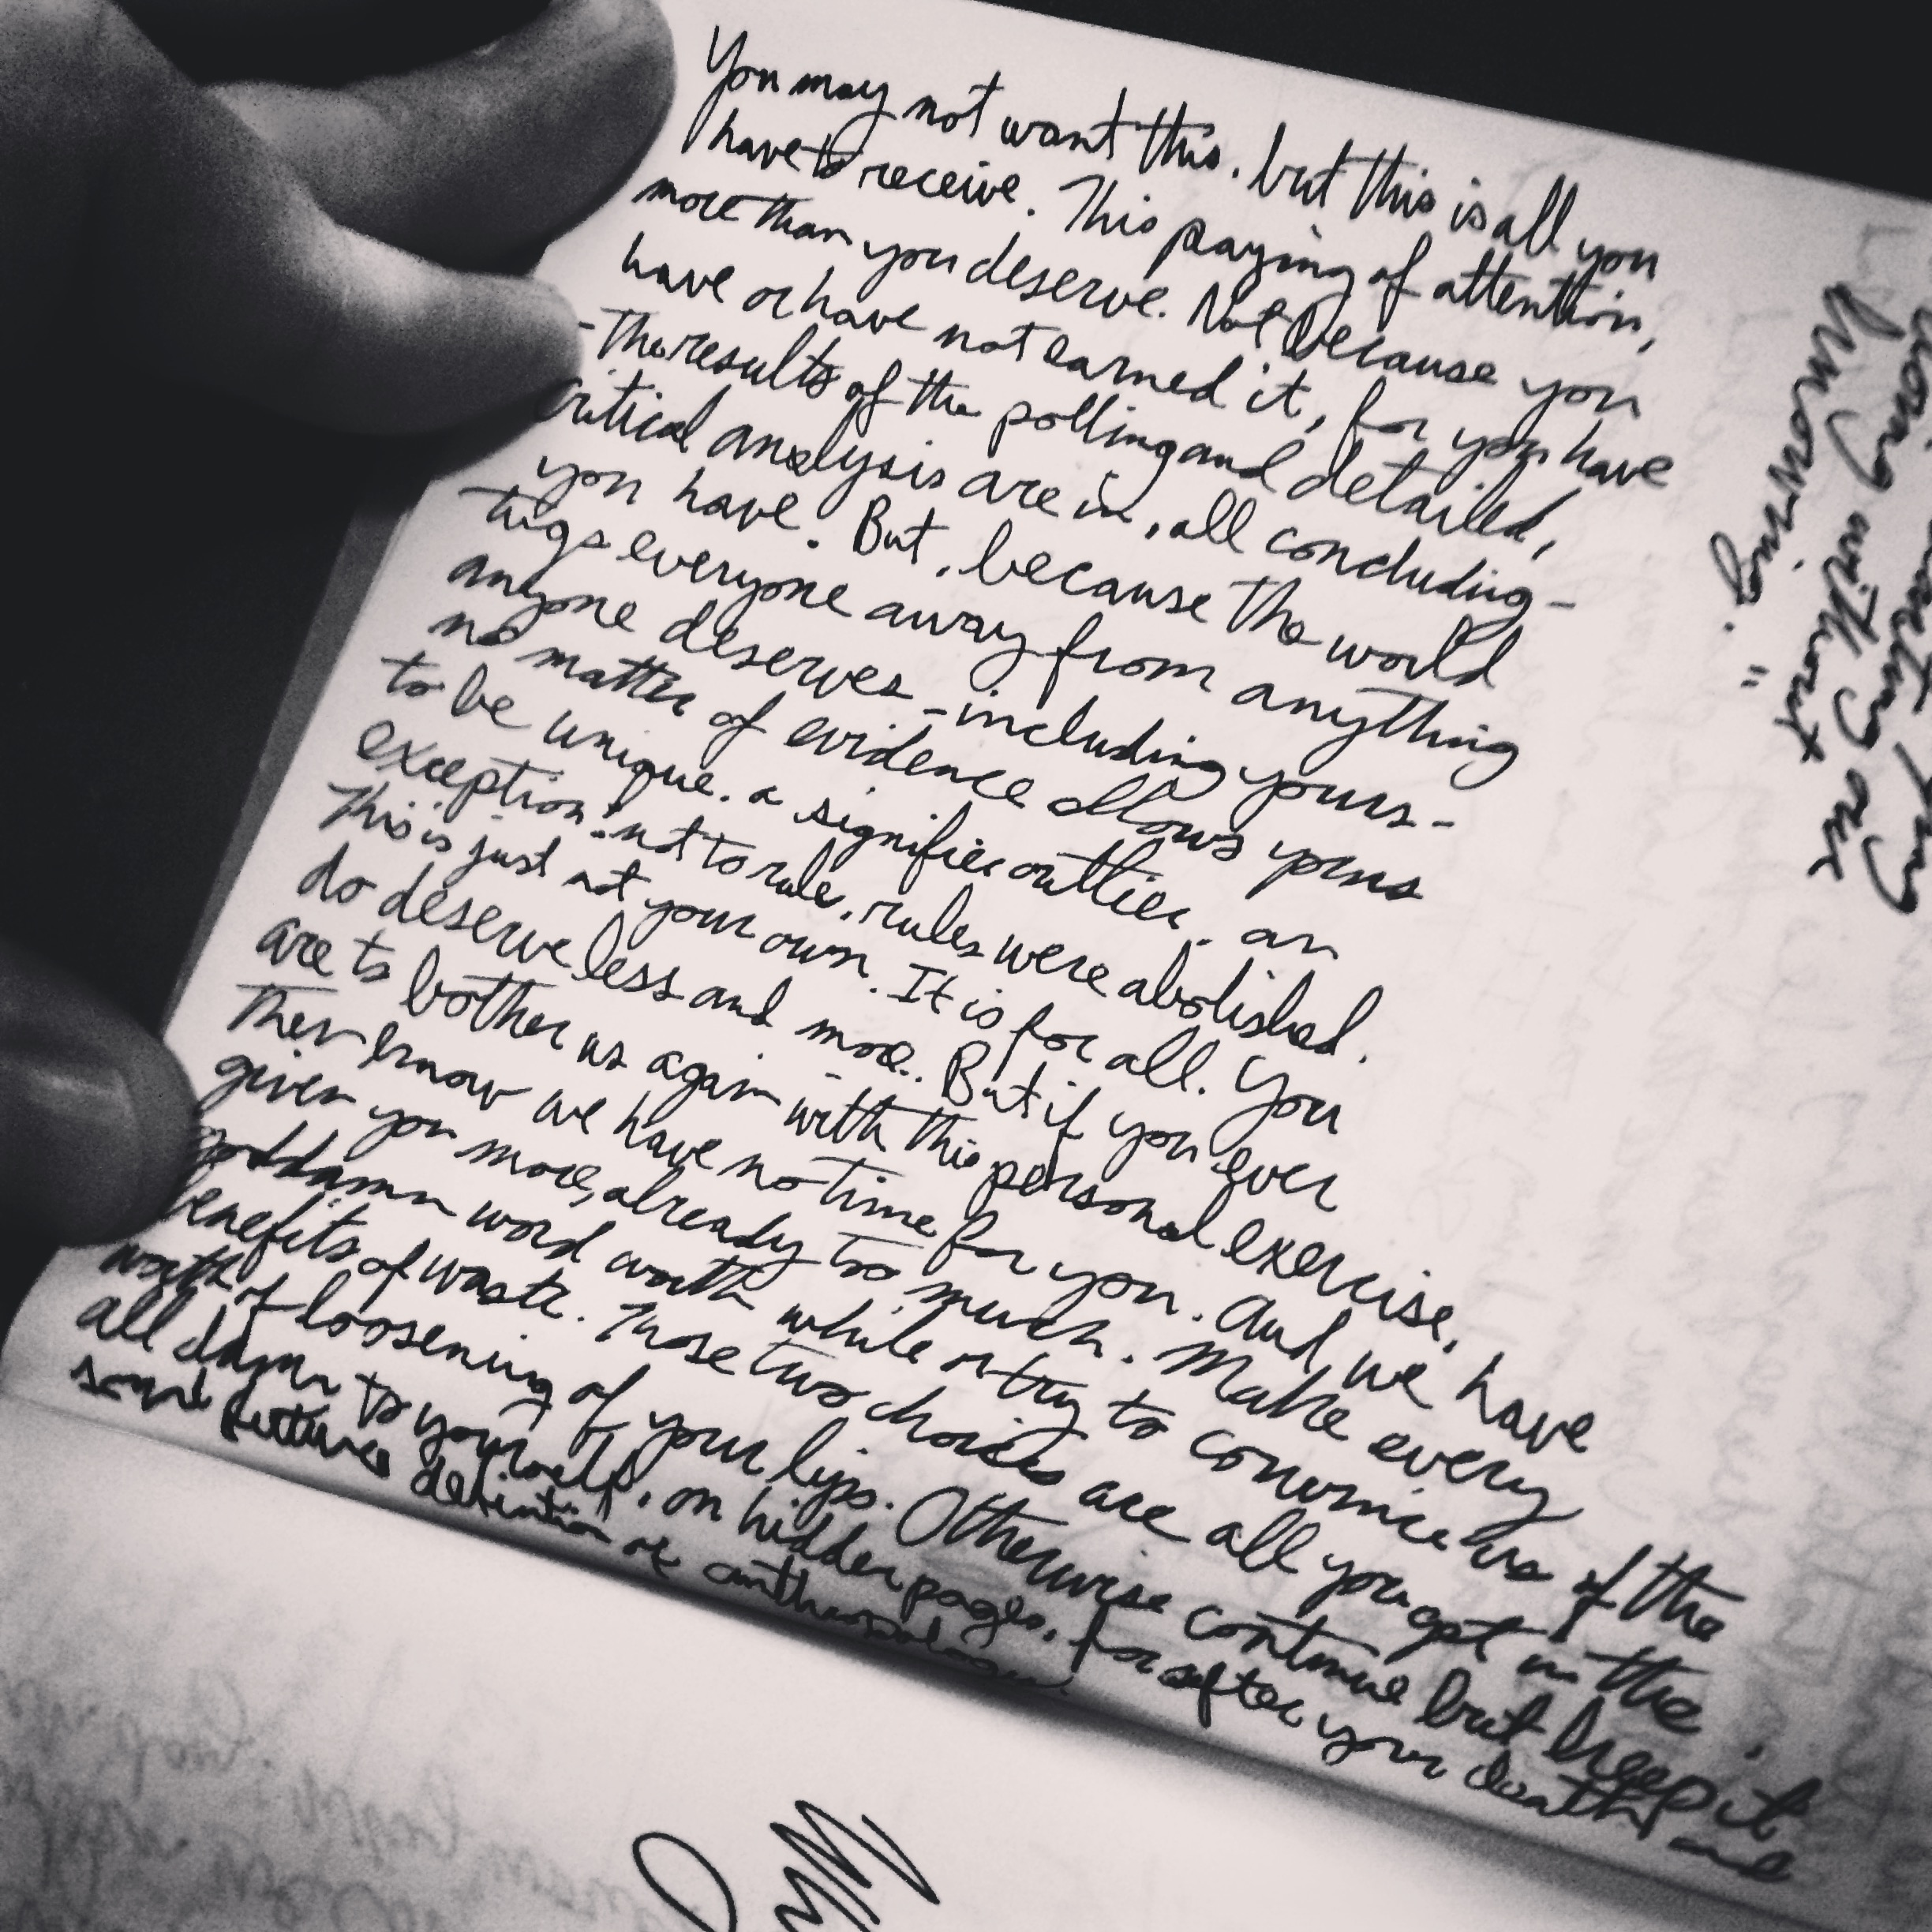 You may not want this, but this is all you
have to receive. This paying of attention,
more than you deserve. Not because you
have or have not earned it, for you have
- the results of the polling and detailed,
critical analysis are in, all concluding -
you have. But, because the world
tugs everyone away from anything
anyone deserves - including yours -
no matter of evidence allows yours
to be unique, a signifier outlier, an
exception: not to rule, rules were abolished.
This is just not your own. It is for all. You
do deserve less and more. But if you ever
are to bother us again with this personal exercise,
Then know we have no time for you. And we have
given you more, already too much. Make every
goddamn word worth while or try to convince us of the
benefits of waste. Those two choices are all you get in the
worth of loosening of your lips. Otherwise continue but keep it
all damn to yourself, on hidden pages, for after your death and
some future definition of anthropologic
long without
knowing."
our